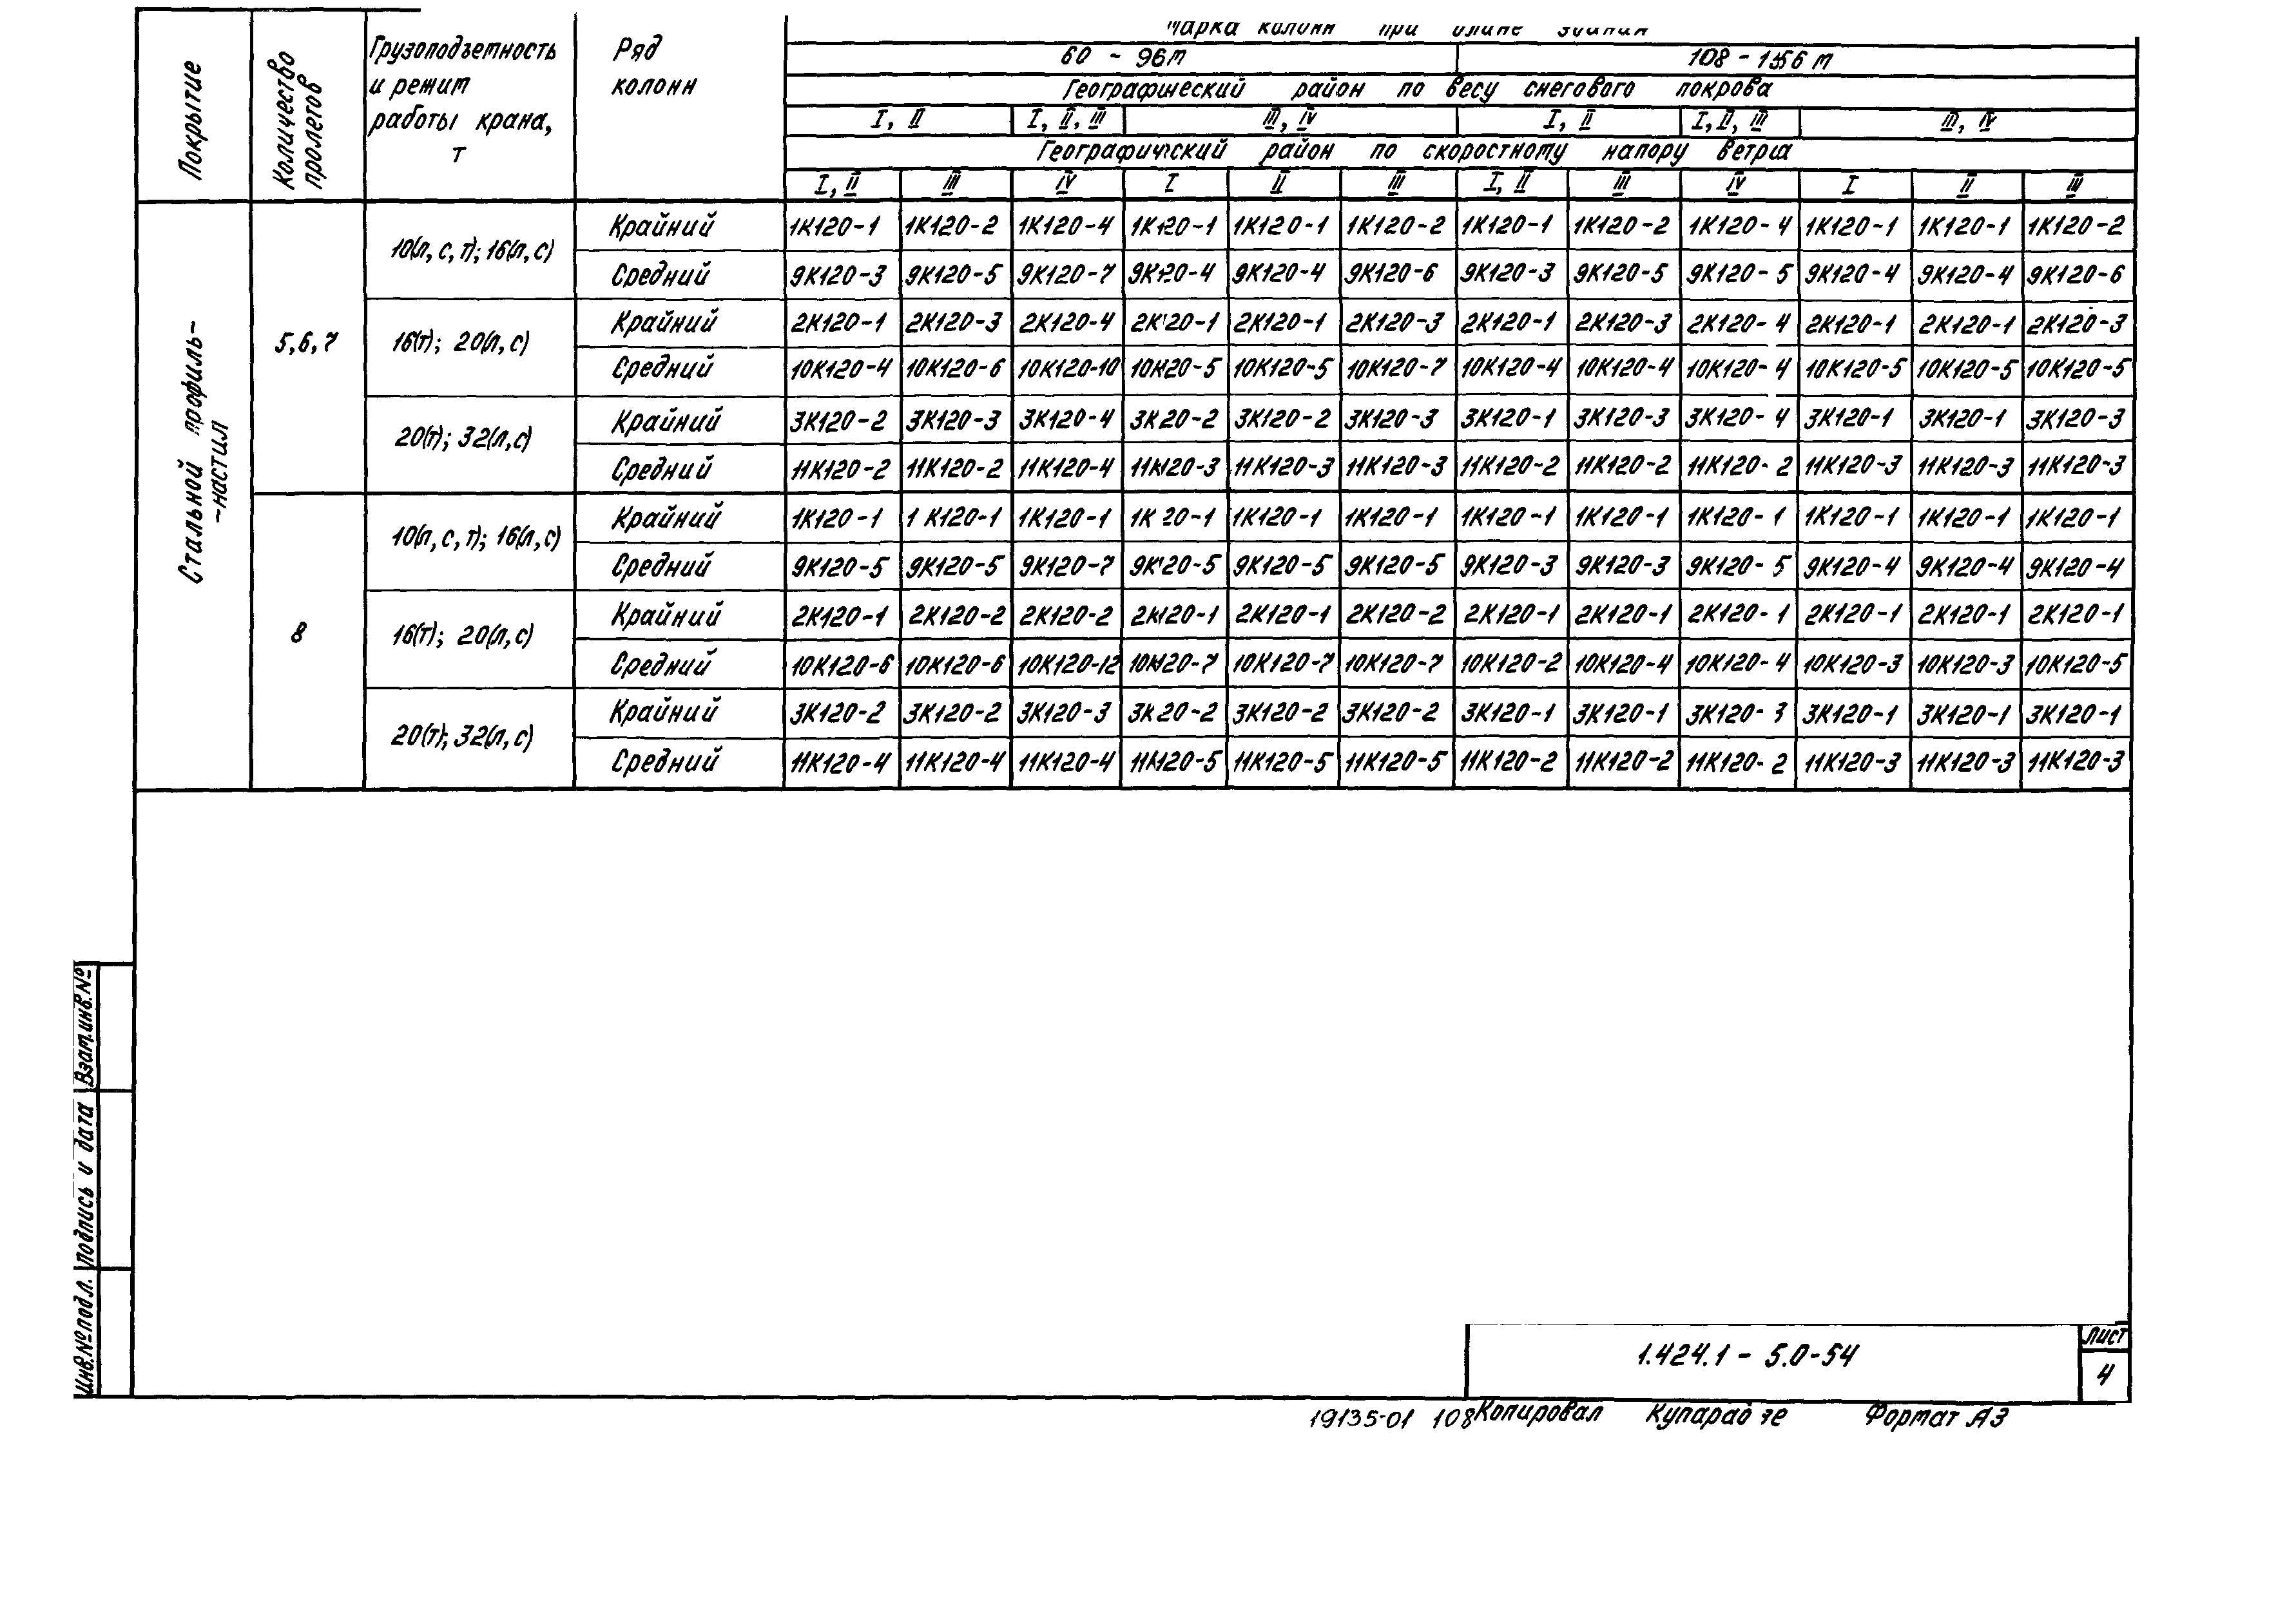 Покрытие
Количество пролетов
Грузоподъемность и режим работы крана, т
Ряд колонн
Марка колонн при длине здания
60 - 96м 108 - 156 м
Географический район по весу снегового покрова
I, II I, II, III III, IV I, II I, II, III III, IV
Географический район по скоростному напору ветра
I, II III IV I II III I, II III IV I II III
Стальной профиль-
-настил
5,6,7
10(л, с, т); 16(л, с)
Крайний 1К120-1 1К120-2 1К120-4 1К120-1 1К120-1 1К120-2 1К120-1 1К120-2 1К120-4 1К120-1 1К120-1 1К120-2
Средний 9К120-3 9К120-5 9К120-7 9К120-4 9К120-4 9К120-6 9К120-3 9К120-5 9К120-5 9К120-4 9К120-4 9К120-6
16(т); 20(л, с)
Крайний 2К120-1 2К120-3 2К120-4 2К120-1 2К120-1 2К120-3 2К120-1 2К120-3 2К120-4 2К120-1 2К120-1 2К120-3
Средний 10К120-4 10К120-6 10К120-10 10К120-5 10К120-5 10К120-7 10К120-4 10К120-4 10К120-4 10К120-5 10К120-5 10К120-5
20(т); 32(л,с)
Крайний 3К120-2 3К120-3 3К120-4 3К120-2 3К120-2 3К120-3 3К120-1 3К120-3 3К120-4 3К120-1 3К120-1 3К120-3
Средний 11К120-2 11К120-2 11К120-4 11К120-3 11К120-3 11К120-3 11К120-2 11К120-2 11К120-2 11К120-3 11К120-3 11К120-3
8
10(л, с, т); 16(л, с)
Крайний 1К120-1 1К120-1 1К120-1 1К120-1 1К120-1 1К120-1 1К120-1 1К120-1 1К120-1 1К120-1 1К120-1 1К120-1
Средний 9К120-5 9К120-5 9К120-7 9К120-5 9К120-5 9К120-5 9К120-3 9К120-3 9К120-5 9К120-4 9К120-4 9К120-4
16(т); 20(л, с)
Крайний 2К120-1 2К120-2 2К120-2 2К120-1 2К120-1 2К120-2 2К120-1 2К120-1 2К120-1 2К120-1 2К120-1 2К120-1
Средний 10К120-6 10К120-6 10К120-12 10К120-7 10К120-7 10К120-7 10К120-2 10К120-4 10К120-4 10К120-3 10К120-3 10К120-5
20(т); 32(л, с)
Крайний 3К120-2 3К120-2 3К120-3 3К120-2 3К120-2 3К120-2 3К120-1 3К120-1 3К120-3 3К120-1 3К120-1 3К120-1
Средний 11К120-4 11К120-4 11К120-4 11К120-5 11К120-5 11К120-5 11К120-2 11К120-2 11К120-2 11К120-3 11К120-3 11К120-3
Взам.инв.№
Подпись и дата
Инв.№ подл.
1.424.1 - 5.0-54
Лист
4
19135-01 108 Копировал Формат А3